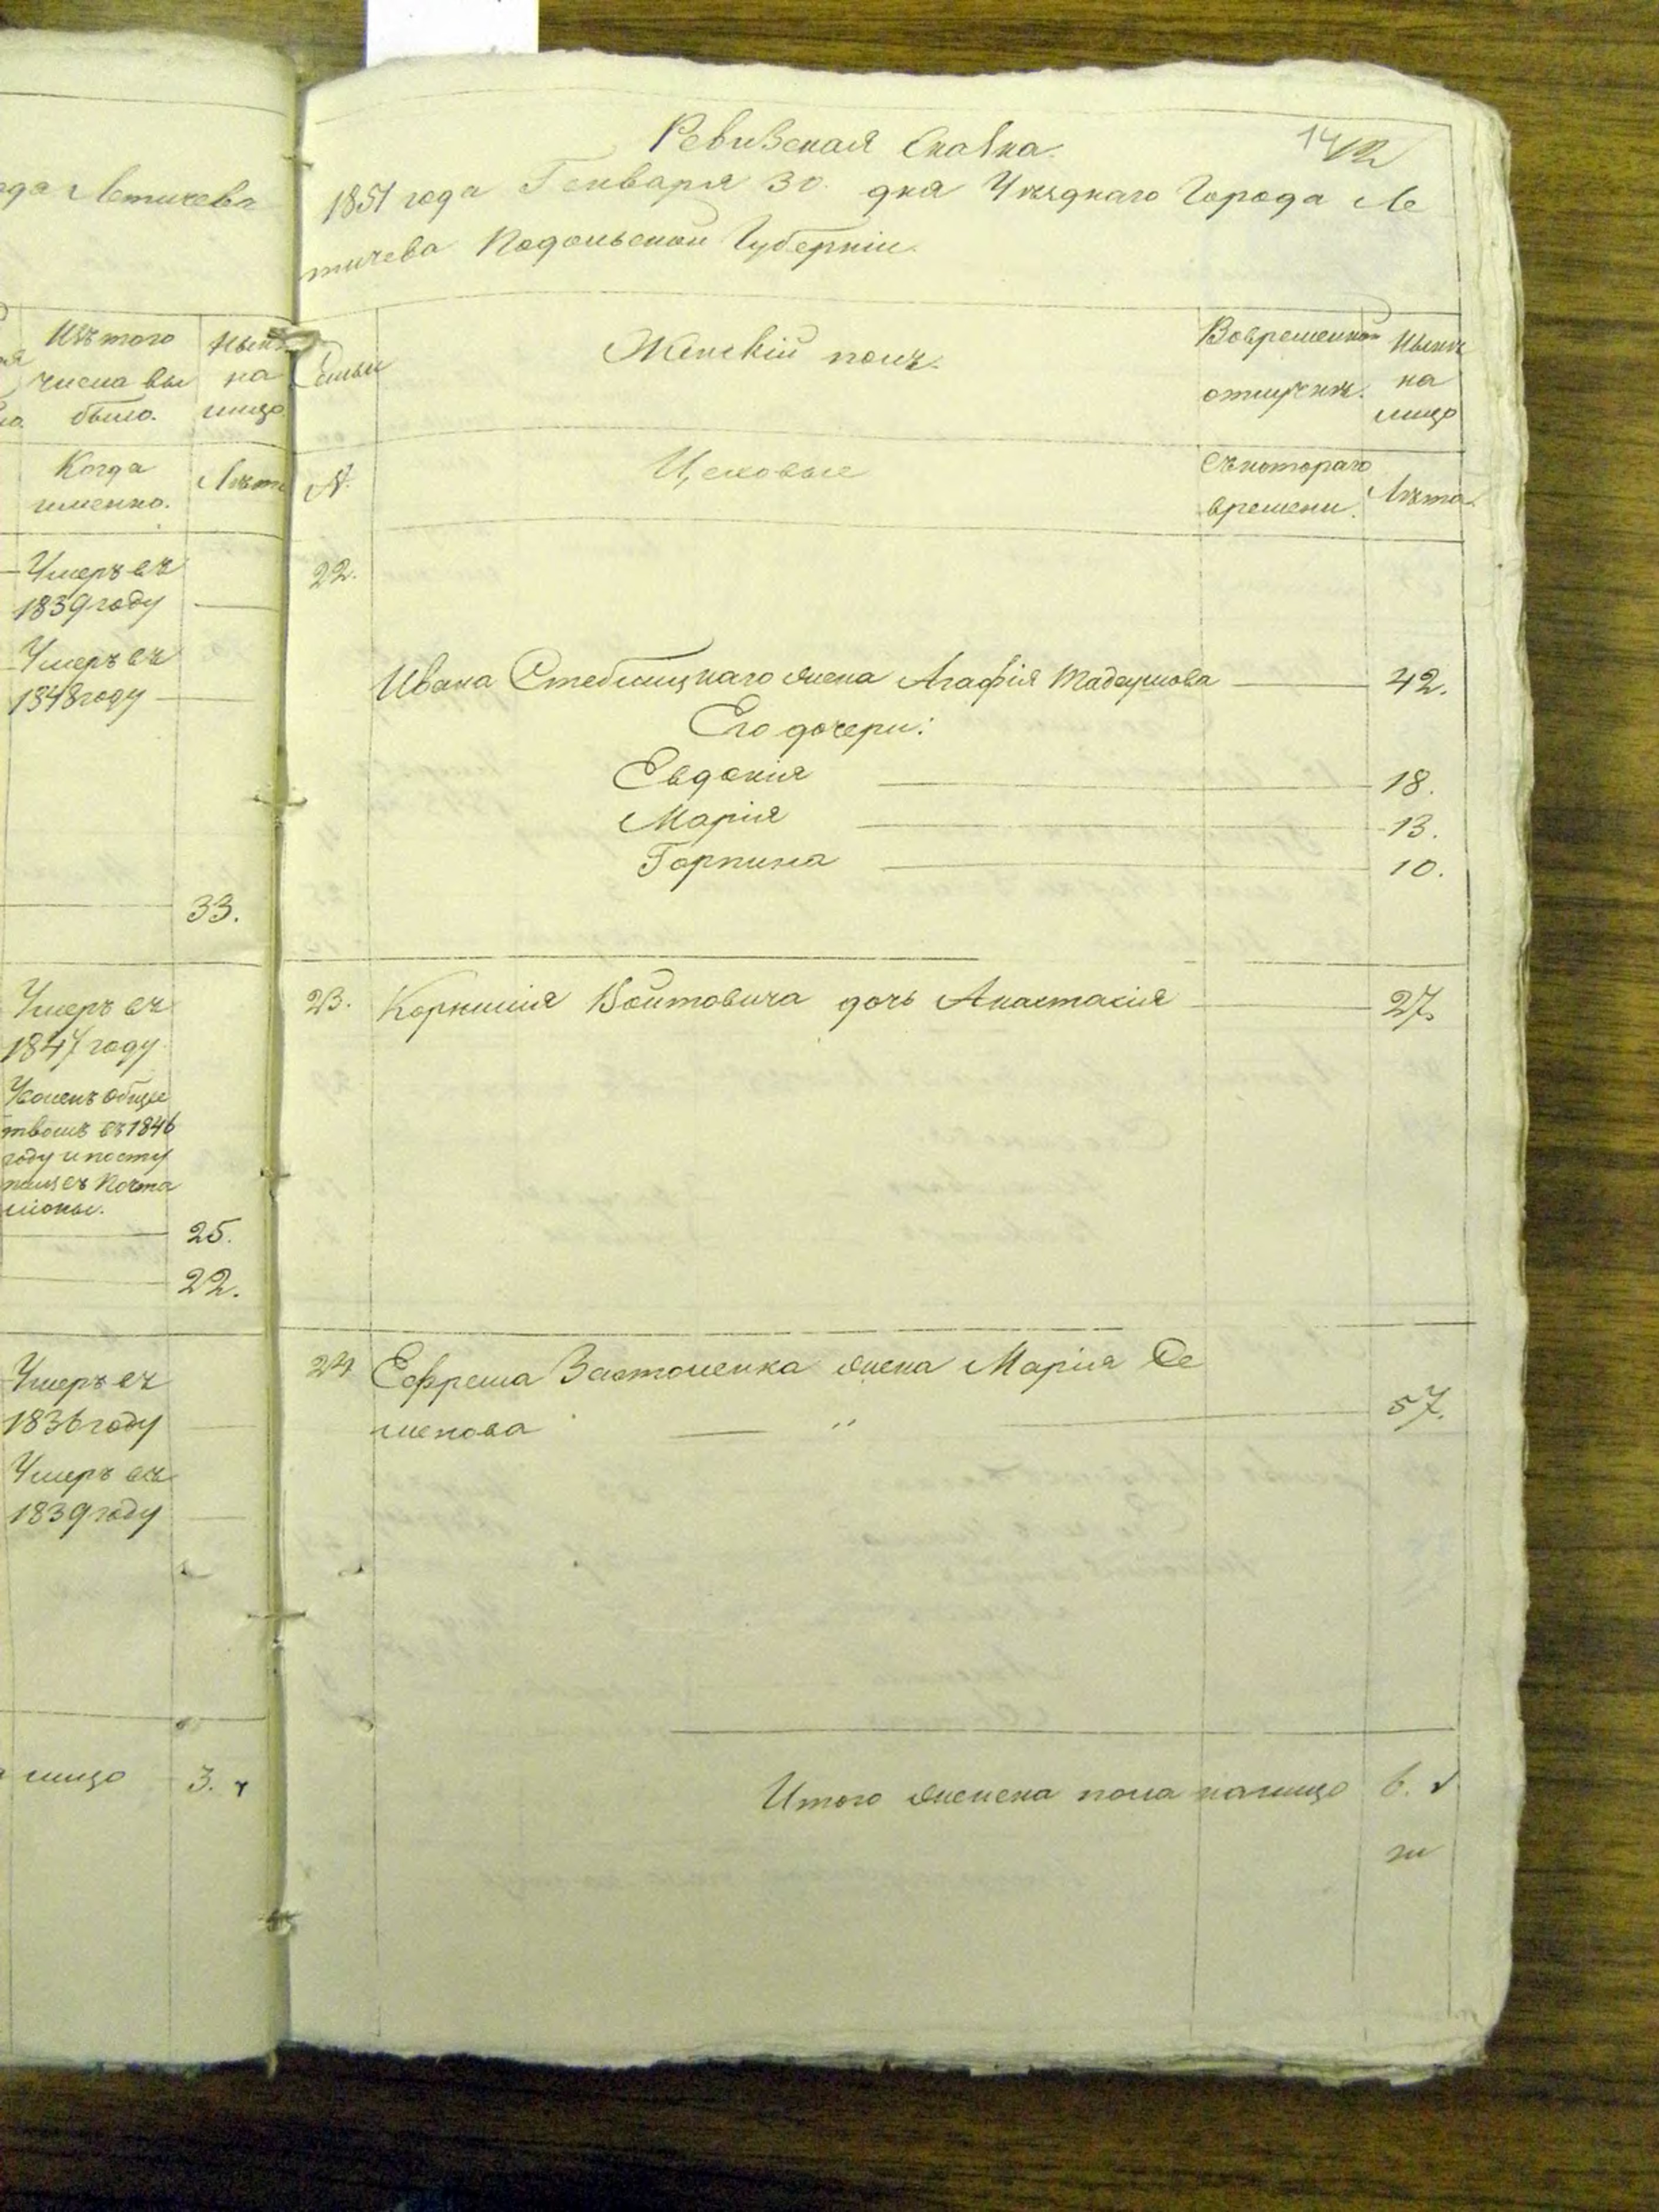 да Летичева
Изъ того
числа вы
было.
Нынѣ
на
лицо.
Когда
именно.
Лѣта
Умеръ въ
1839 году
Умеръ въ
1848 году
33.
Умеръ въ
1847 году
обще
ствомъ въ 1846
году и посту
пилъ въ Почта
лiоны.
25.
22.
Умеръ въ
1836 году
Умеръ въ
1839 году
лицо 3.
Ревизская Сказка.
14
12
1851 года Генваря 30. дня Уѣзднаго Города Ле
тичева Подольской Губернiи.
Семьи
Женскiй полъ.
Вовременной
отлучкѣ.
Нынѣ
на
лицо
№.
Цеховые
Съкотораго
времени.
Лѣта.
22.
Ивана Стеблицкаго жена Агафiя Тадеушова 42.
Его дочери:
Евдокiя 18.
Марiя 13.
Горпина 10.
23. Корнилiя Войтовича дочь Анастасiя 27.
24 Ефрема жена Марiя Се
менова " 57.
Итого женска пола налицо 6.